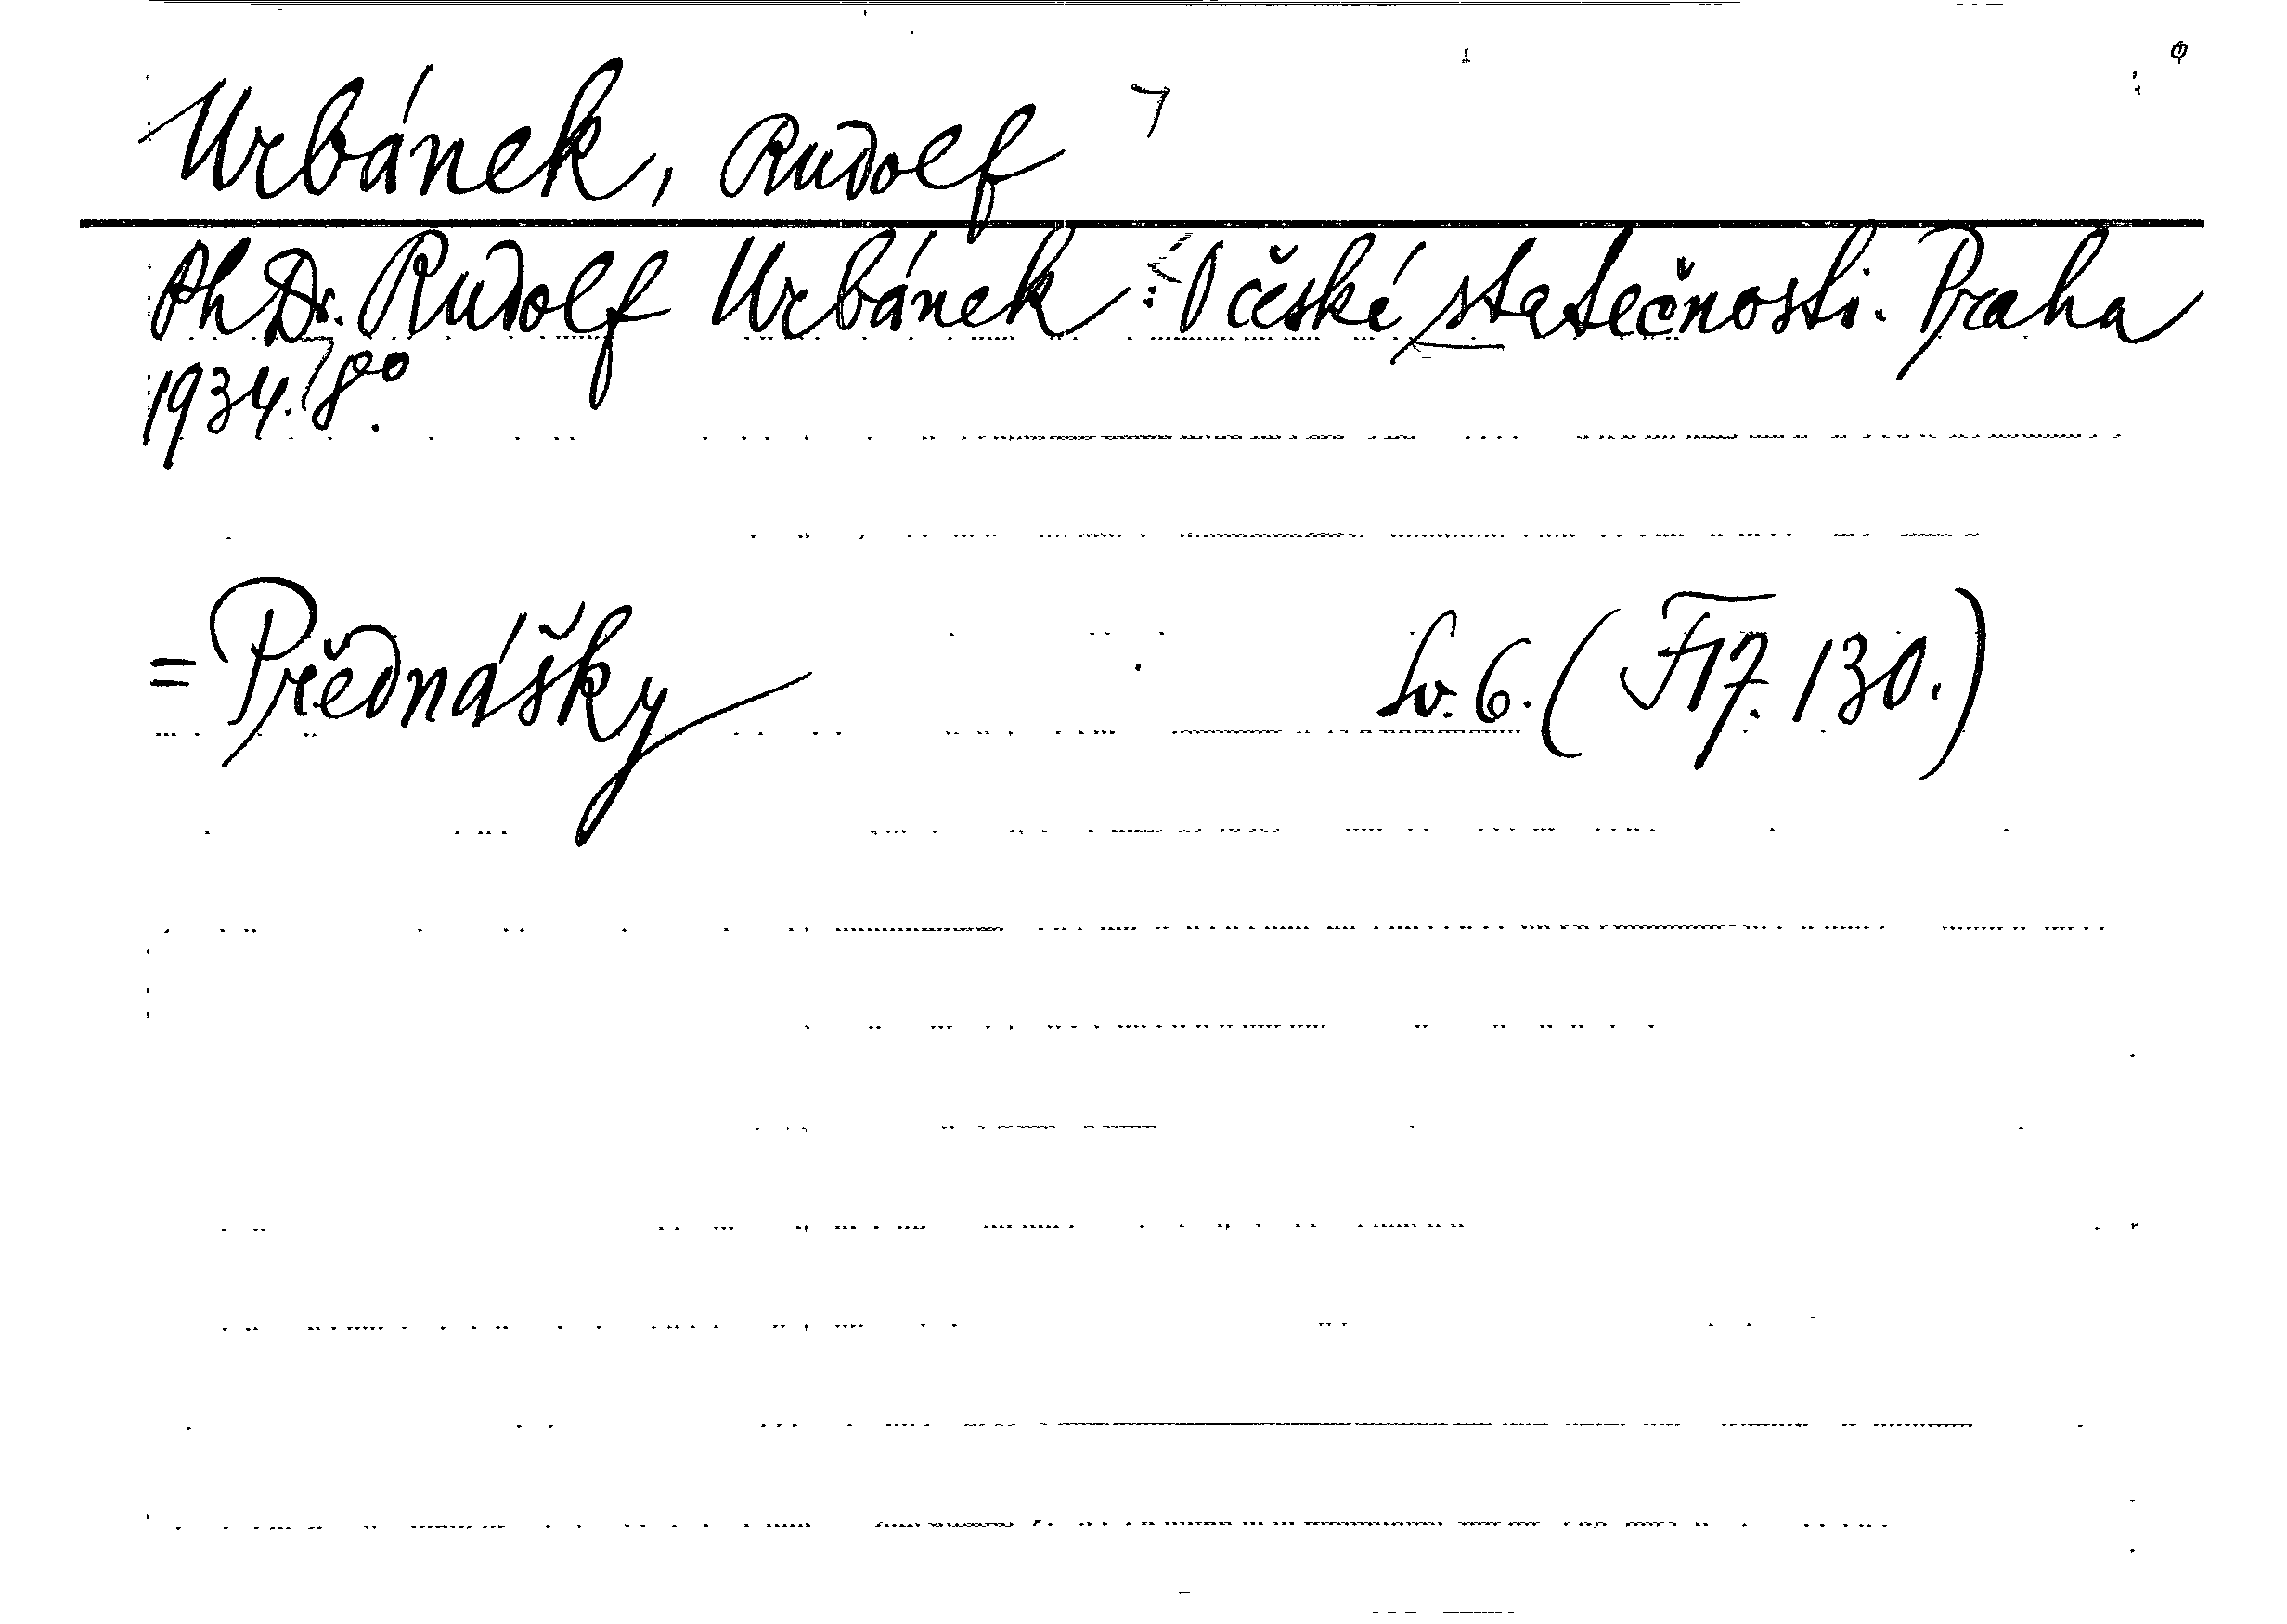 Urbánek, Rudolf
PhDr. Rudolf Urbánek: O české statečnosti. Praha
1934. 8°.
= Přednášky Sv. 6. (F 17. 130.)